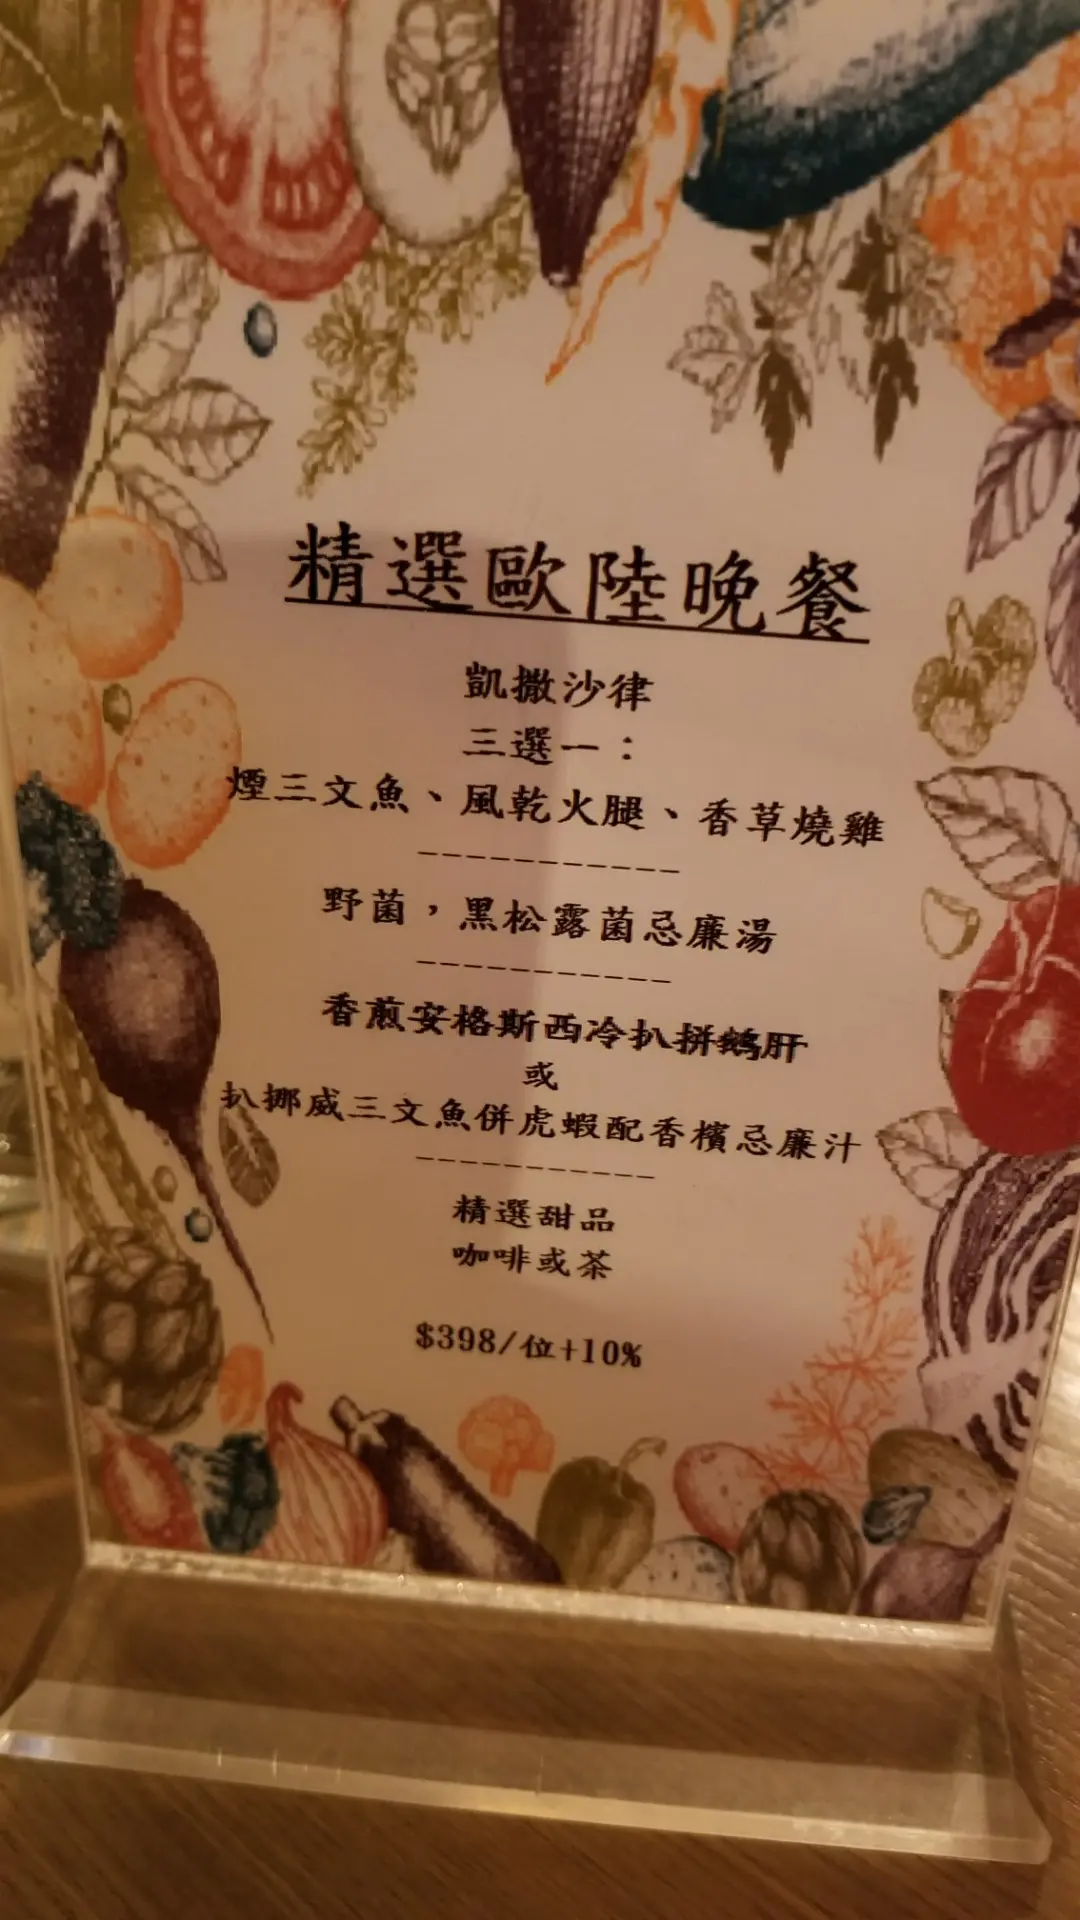 精選歐陸晚餐
凱撒沙律
三選一：
煙三文魚、風乾火腿、香草燒雞
-----------
野菌，黑松露菌忌廉湯
-----------
香煎安格斯西冷扒拼鵝肝
或
扒挪威三文魚併虎蝦配香檳忌廉汁
-----------
精選甜品
咖啡或茶
$398/位+10%